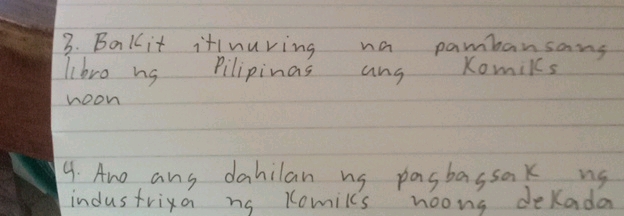 3. Bakit itinuring na pambansang
libro ng Pilipinas ang Komiks
noon
4. Ano ang dahilan ng pagbagsak ng
industriya ng Komiks noong dekada